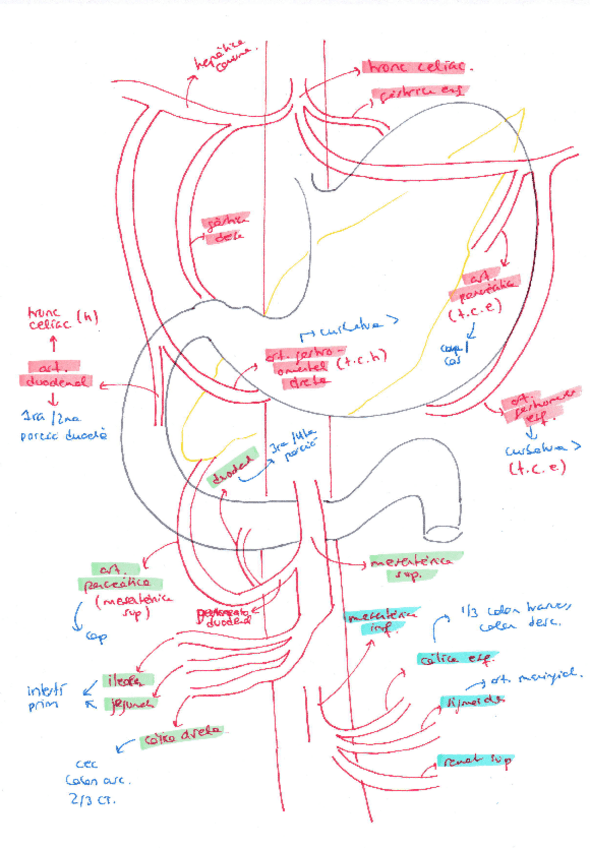 hepàtica
comuna
tronc celíac
gàstrica esq
gàstrica
dreta
tronc
celíac (h)
art.
duodenal
1ra / 2na
porció duodè
curvatura >
art. gastro-
omental (t.c.h)
dreta
art.
pancreàtica
(t.c.e)
cap /
cos
art.
gastroomental
esq.
curvatura >
(t.c.e)
duodenal
3ra / 4ta
porció
art.
pancreàtica
(mesentèrica
sup)
cap
pancreato
duodenal
mesentèrica
sup.
mesentèrica
inf.
1/3 colon transv,
colon desc.
còlica esq.
sigmoidea
art. marginal.
rectal sup
ileals
jejunals
intestí
prim
còlica dreta
cec
colon asc.
2/3 CT.